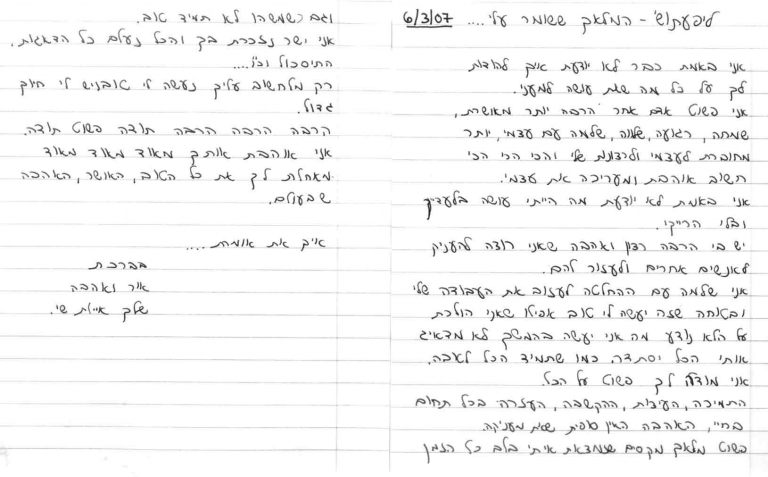 ליפעתוש - המלאך ששומר עלי.... 6/3/07
אני באמת כבר לא יודעת איך להודות
לך על כל מה שאת עושה למעני.
אני פשוט אדם אחר הרבה יותר מאושרת,
שמחה, רגועה, שלווה, שלמה עם עצמי, יותר
מחוברת לעצמי ולרצונות שלי והכי הכי הכי
חשוב אוהבת ומעריכה את עצמי.
אני באמת לא יודעת מה הייתי עושה בלעדיך
ובלי הרייקי.
יש בי הרבה רצון ואהבה שאני רוצה להעניק
לאנשים אחרים ולעזור להם.
אני שלמה עם ההחלטה לעזוב את העבודה שלי
ובטוחה שזה יעשה לי טוב אפילו שאני הולכת
על הלא נודע מה אני יעשה בהמשך לא מדאיג
אותי הכל יסתדר כמו שתמיד הכל לטובה.
אני מודה לך פשוט על הכל.
התמיכה, העיצות, ההקשבה, העזרה בכל תחום
בחיי, האהבה האין סופית שאת מעניקה.
פשוט מלאך מקסים שנמצאת איתי בלב כל הזמן
וגם כשמשהו לא תמיד טוב.
אני ישר נזכרת בך והכל נעלם כל הדאגות,
התיסכול וכו'....
רק מלחשוב עליך נעשה לי טוב ויש לי חיוך
גדול.
הרבה הרבה הרבה תודה פשוט תודה.
אני אוהבת אותך מאוד מאוד מאוד
מאחלת לך את כל הטוב, האושר, האהבה
שבעולם.
איך את אומרת....
בברכת
אור ואהבה
שלך איילת שי.